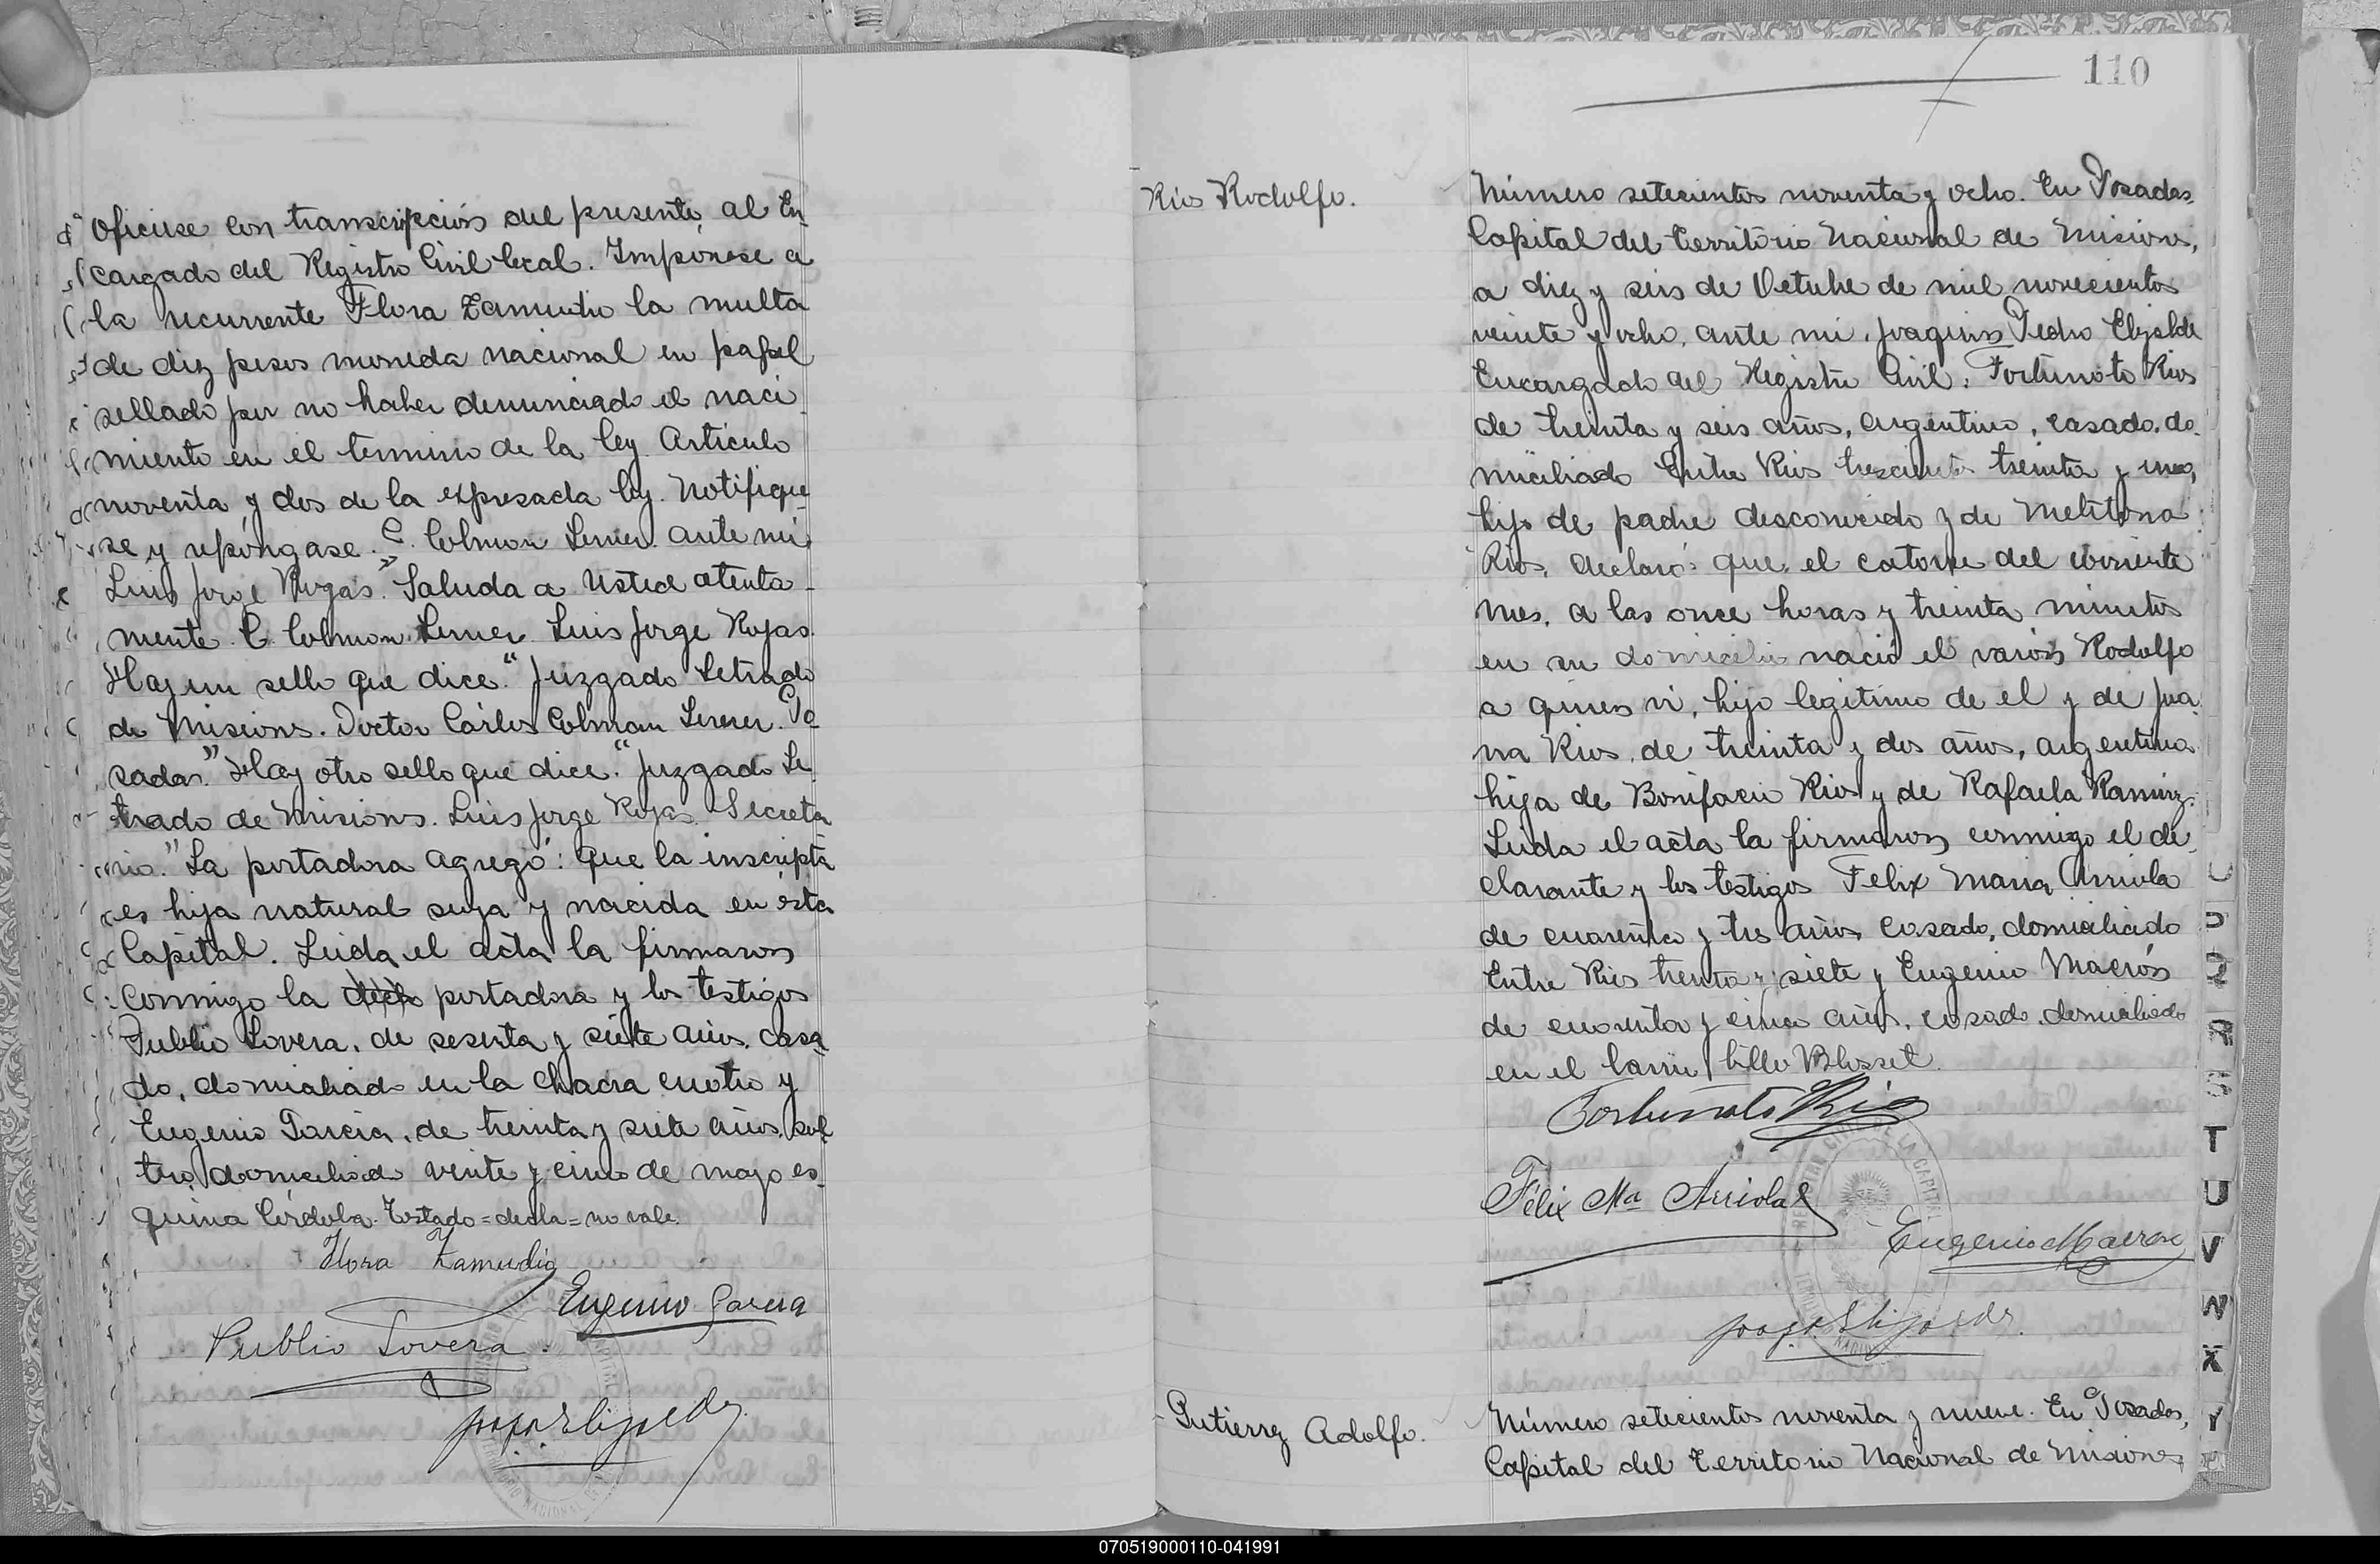 Oficiese con transcripción del presente al En-
cargado del Registro Civil local. Impónese a
la recurrente Flora Zamudio la multa
de diez pesos moneda nacional en papel
sellado por no haber denunciado el naci-
miento en el termino de la ley Artículo
noventa y dos de la expresada ley. Notifique-
se y repóngase. C. Colman Lerner. Ante mi
Luis Jorge Rojas." Saluda a Usted atenta-
mente. C. Colman Lerner. Luis Jorge Rojas.
Hay un sello que dice: "Juzgado Letrado
de Misiones. Doctor Cárlos Colman Lerner. Po-
sadas." Hay otro sello que dice: "Juzgado Le-
trado de Misiones. Luis Jorge Rojas. Secreta-
rio." La portadora agregó: Que la inscripta
es hija natural suya y nacida en ésta
Capital. Leida el acta la firmaron
conmigo la portadora y los testigos
Publio Lovera, de sesenta y siete años, casa-
do, domiciliado en la chacra cuatro y
Eugenio Garcia, de treinta y siete años, sol-
tero, domiciliado veinte y cinco de mayo es-
quina Córdoba. Testado = decla = no vale.
Flora Zamudio
Eugenio Garcia
Publio Lovera
110
Rios Rodolfo.
Número setecientos noventa y ocho. En Posadas,
Capital del Territorio Nacional de Misiones,
a diez y seis de Octubre de mil novecientos
veinte y ocho, ante mi, Joaquin Pedro Elizalde
Encargado del Registro Civil, Fortunato Rios
de treinta y seis años, argentino, casado, do-
miciliado Entre Rios trescientos treinta y uno,
hijo de padre desconocido y de Melitona
Rios, declaró: que, el catorce del corriente
mes, a las once horas y treinta minutos
en su domicilio nació el varón Rodolfo
a quien vi, hijo legitimo de el y de Jua-
na Rios, de treinta y dos años, argentina
hija de Bonifacio Rios y de Rafaela Ramirez.
Leida el acta la firmaron conmigo el de-
clarante y los testigos Felix Maria Arriola
de cuarenta y tres años casado, domiciliado
Entre Rios treinta y siete y Eugenio Macrós
de cuarenta y cinco años, casado, domiciliado
en el barrio Villa Blosset.
Fortunato Rios
Félix Ma Arriola
Gutierrez Adolfo.
Número setecientos noventa y nueve. En Posadas,
Capital del Territorio Nacional de Misiones
Q
R
S
T
U
V
W
X
Y
070519000110-041991